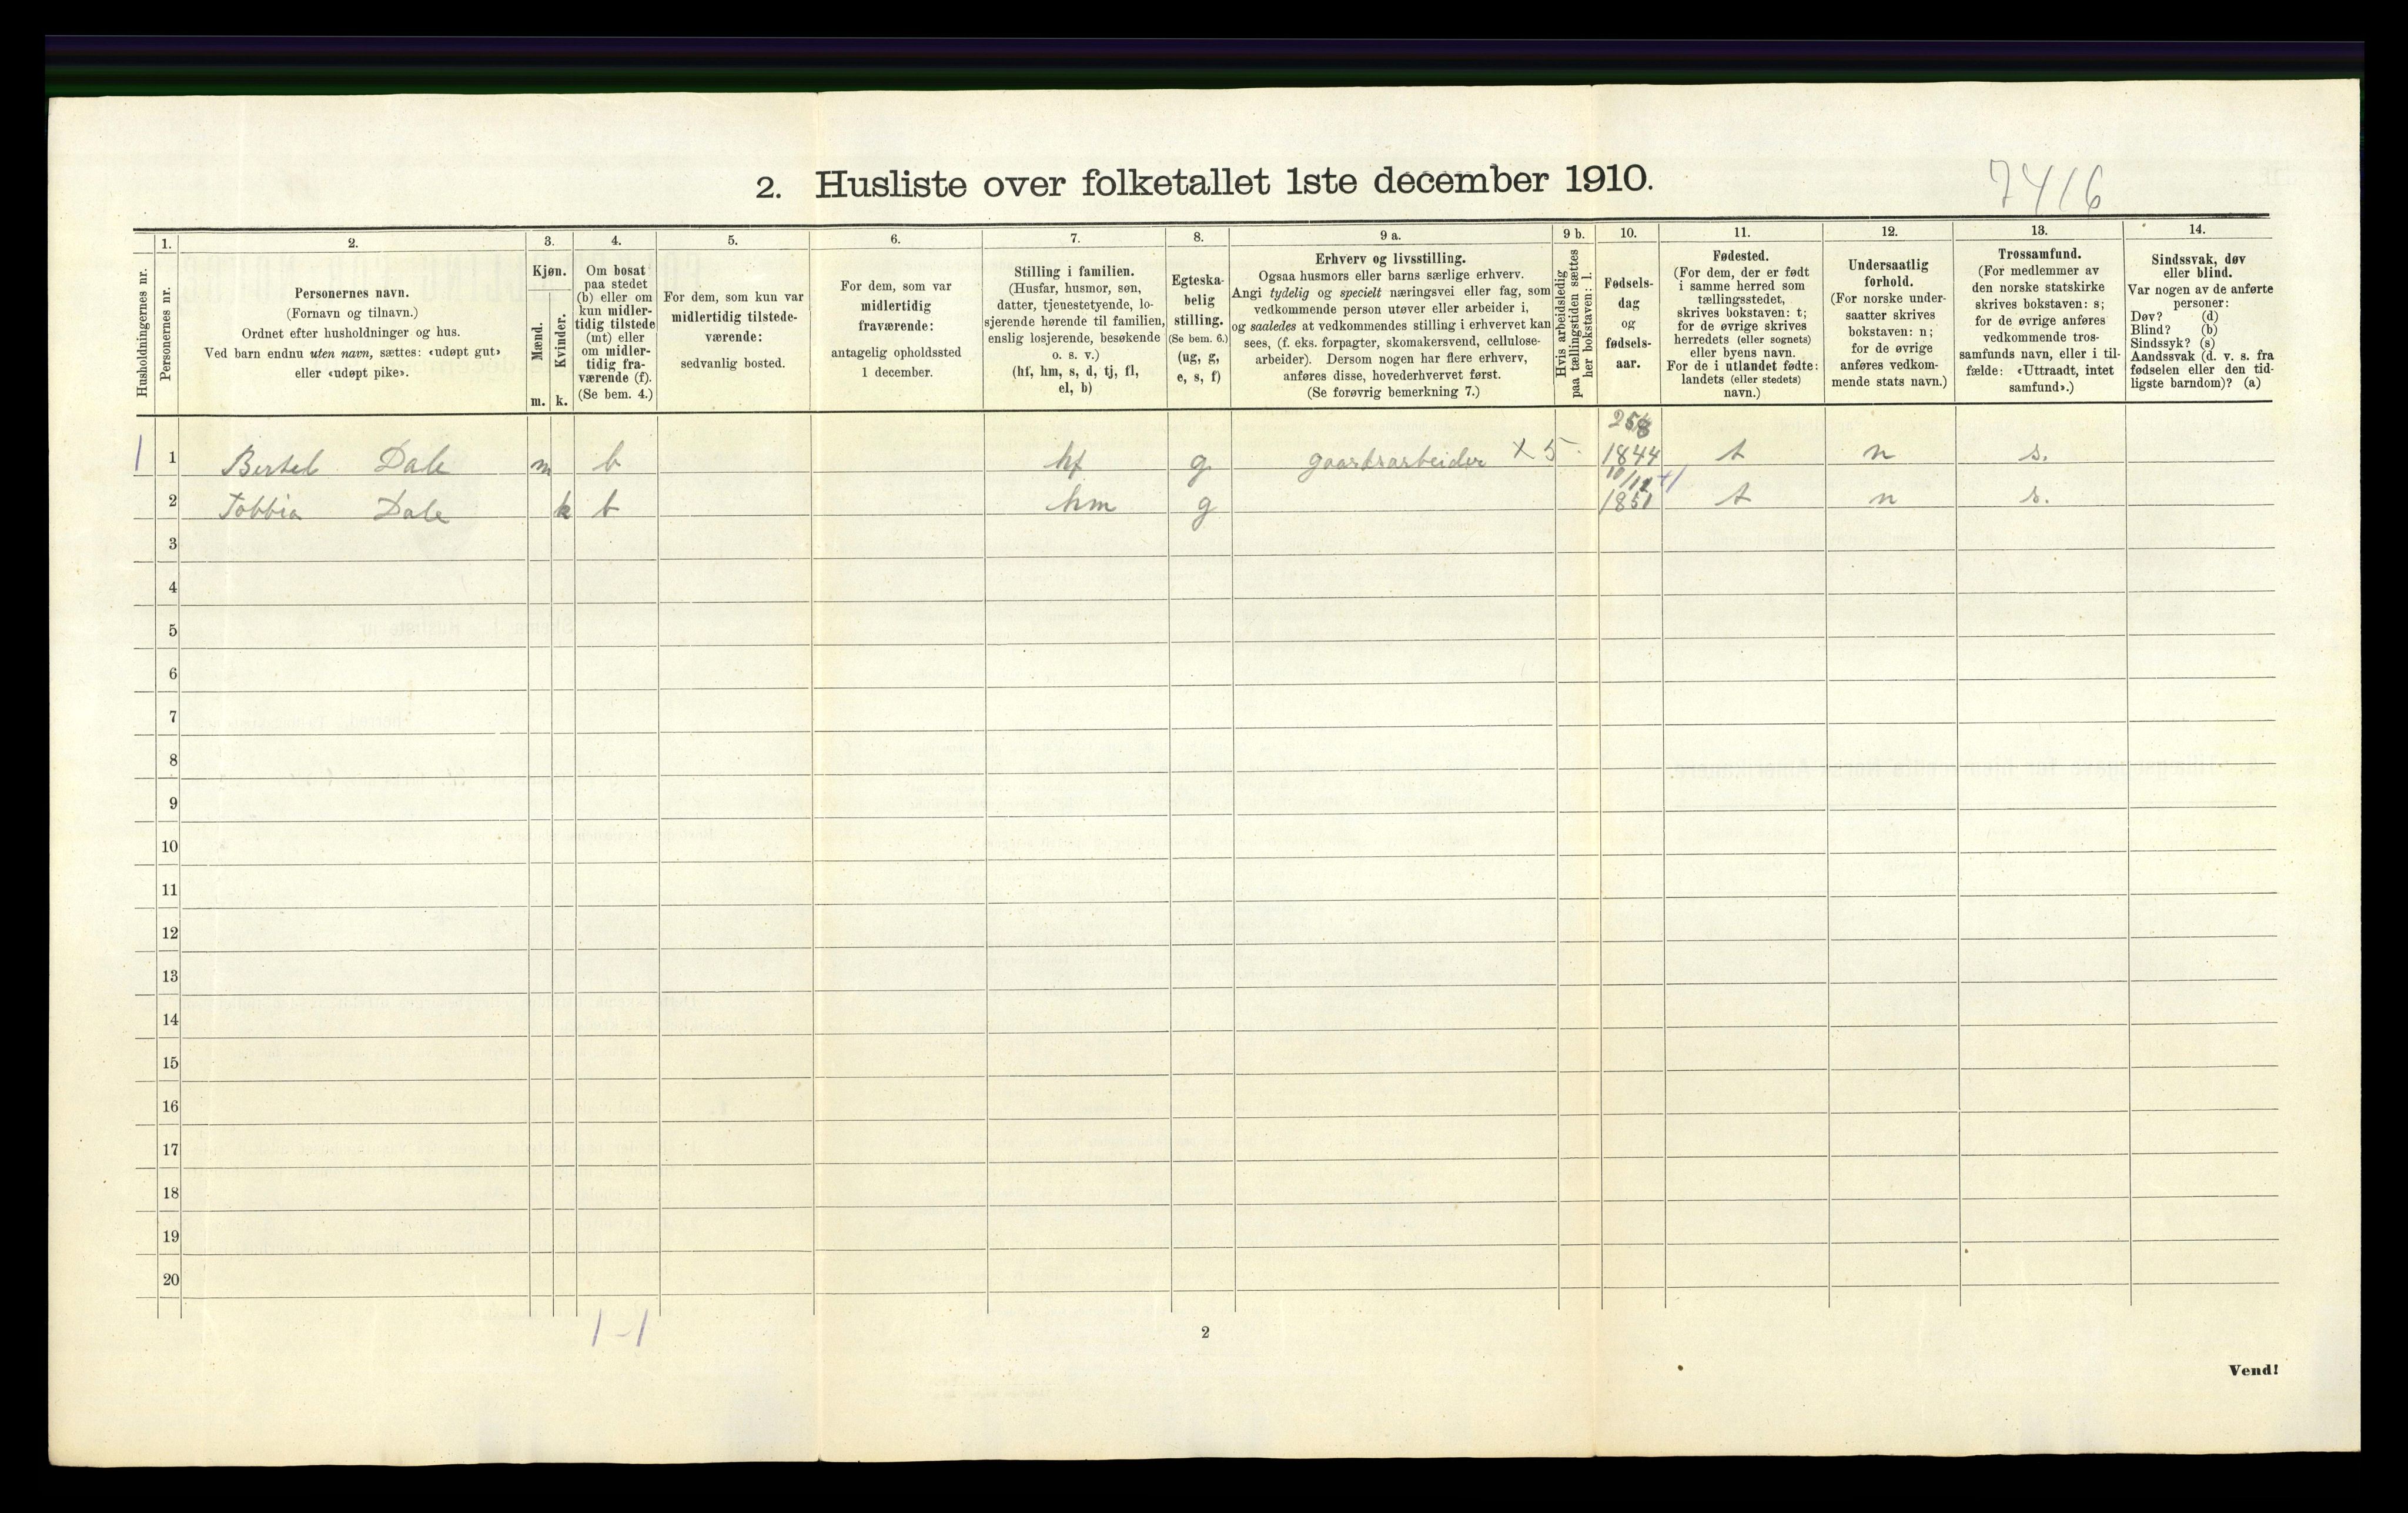 2. Husliste over folketallet 1ste december 1910.
7416
Husholdningernes nr.
1.
Personernes nr.
2.
Personernes navn.
(Fornavn og tilnavn.)
Ordnet efter husholdninger og hus.
Ved barn endnu uten navn, sættes: «udøpt gut»
eller «udøpt pike».
3.
Kjøn.
Mænd.
Kvinder.
m. k.
4.
Om bosat
paa stedet
(b) eller om
kun midler-
tidig tilstede
(mt) eller
om midler-
tidig fra-
værende (f).
(Se bem. 4.)
5.
For dem, som kun var
midlertidig tilstede-
værende:
sedvanlig bosted.
6.
For dem, som var
midlertidig
fraværende:
antagelig opholdssted
1 december.
7.
Stilling i familien.
(Husfar, husmor, søn,
datter, tjenestetyende, lo-
sjerende hørende til familien,
enslig losjerende, besøkende
o. s. v.)
(hf, hm, s, d, tj, fl,
el, b)
8.
Egteska-
belig
stilling.
(Se bem. 6.)
(ug, g,
e, s, f)
9 a.
Erhverv og livsstilling.
Ogsaa husmors eller barns særlige erhverv.
Angi tydelig og specielt næringsvei eller fag, som
vedkommende person utøver eller arbeider i,
og saaledes at vedkommendes stilling i erhvervet kan
sees, (f. eks. forpagter, skomakersvend, cellulose-
arbeider). Dersom nogen har flere erhverv,
anføres disse, hovederhvervet først.
(Se forøvrig bemerkning 7.)
9 b.
Hvis arbeidsledig
paa tællingstiden sættes
her bokstaven: l.
10.
Fødsels-
dag
og
fødsels-
aar.
11.
Fødested.
(For dem, der er født
i samme herred som
tællingsstedet,
skrives bokstaven: t;
for de øvrige skrives
herredets (eller sognets)
eller byens navn.
For de i utlandet fødte:
landets (eller stedets)
navn.)
12.
Undersaatlig
forhold.
(For norske under-
saatter skrives
bokstaven: n;
for de øvrige
anføres vedkom-
mende stats navn.)
13.
Trossamfund.
(For medlemmer av
den norske statskirke
skrives bokstaven: s;
for de øvrige anføres
vedkommende tros-
samfunds navn, eller i til-
fælde: «Uttraadt, intet
samfund».)
14.
Sindssvak, døv
eller blind.
Var nogen av de anførte
personer:
Døv? (d)
Blind? (b)
Sindssyk? (s)
Aandssvak (d. v. s. fra
fødselen eller den tid-
ligste barndom)? (a)
1 1 Bertel Dale m b hf g gaardsarbeider X 5 1844 t n s.
10/12
2 Tobbia Dale k b hm g 1851 t n s.
3
4
5
6
7
8
9
10
11
12
13
14
15
16
17
18
19
20
1-1
2
Vend!